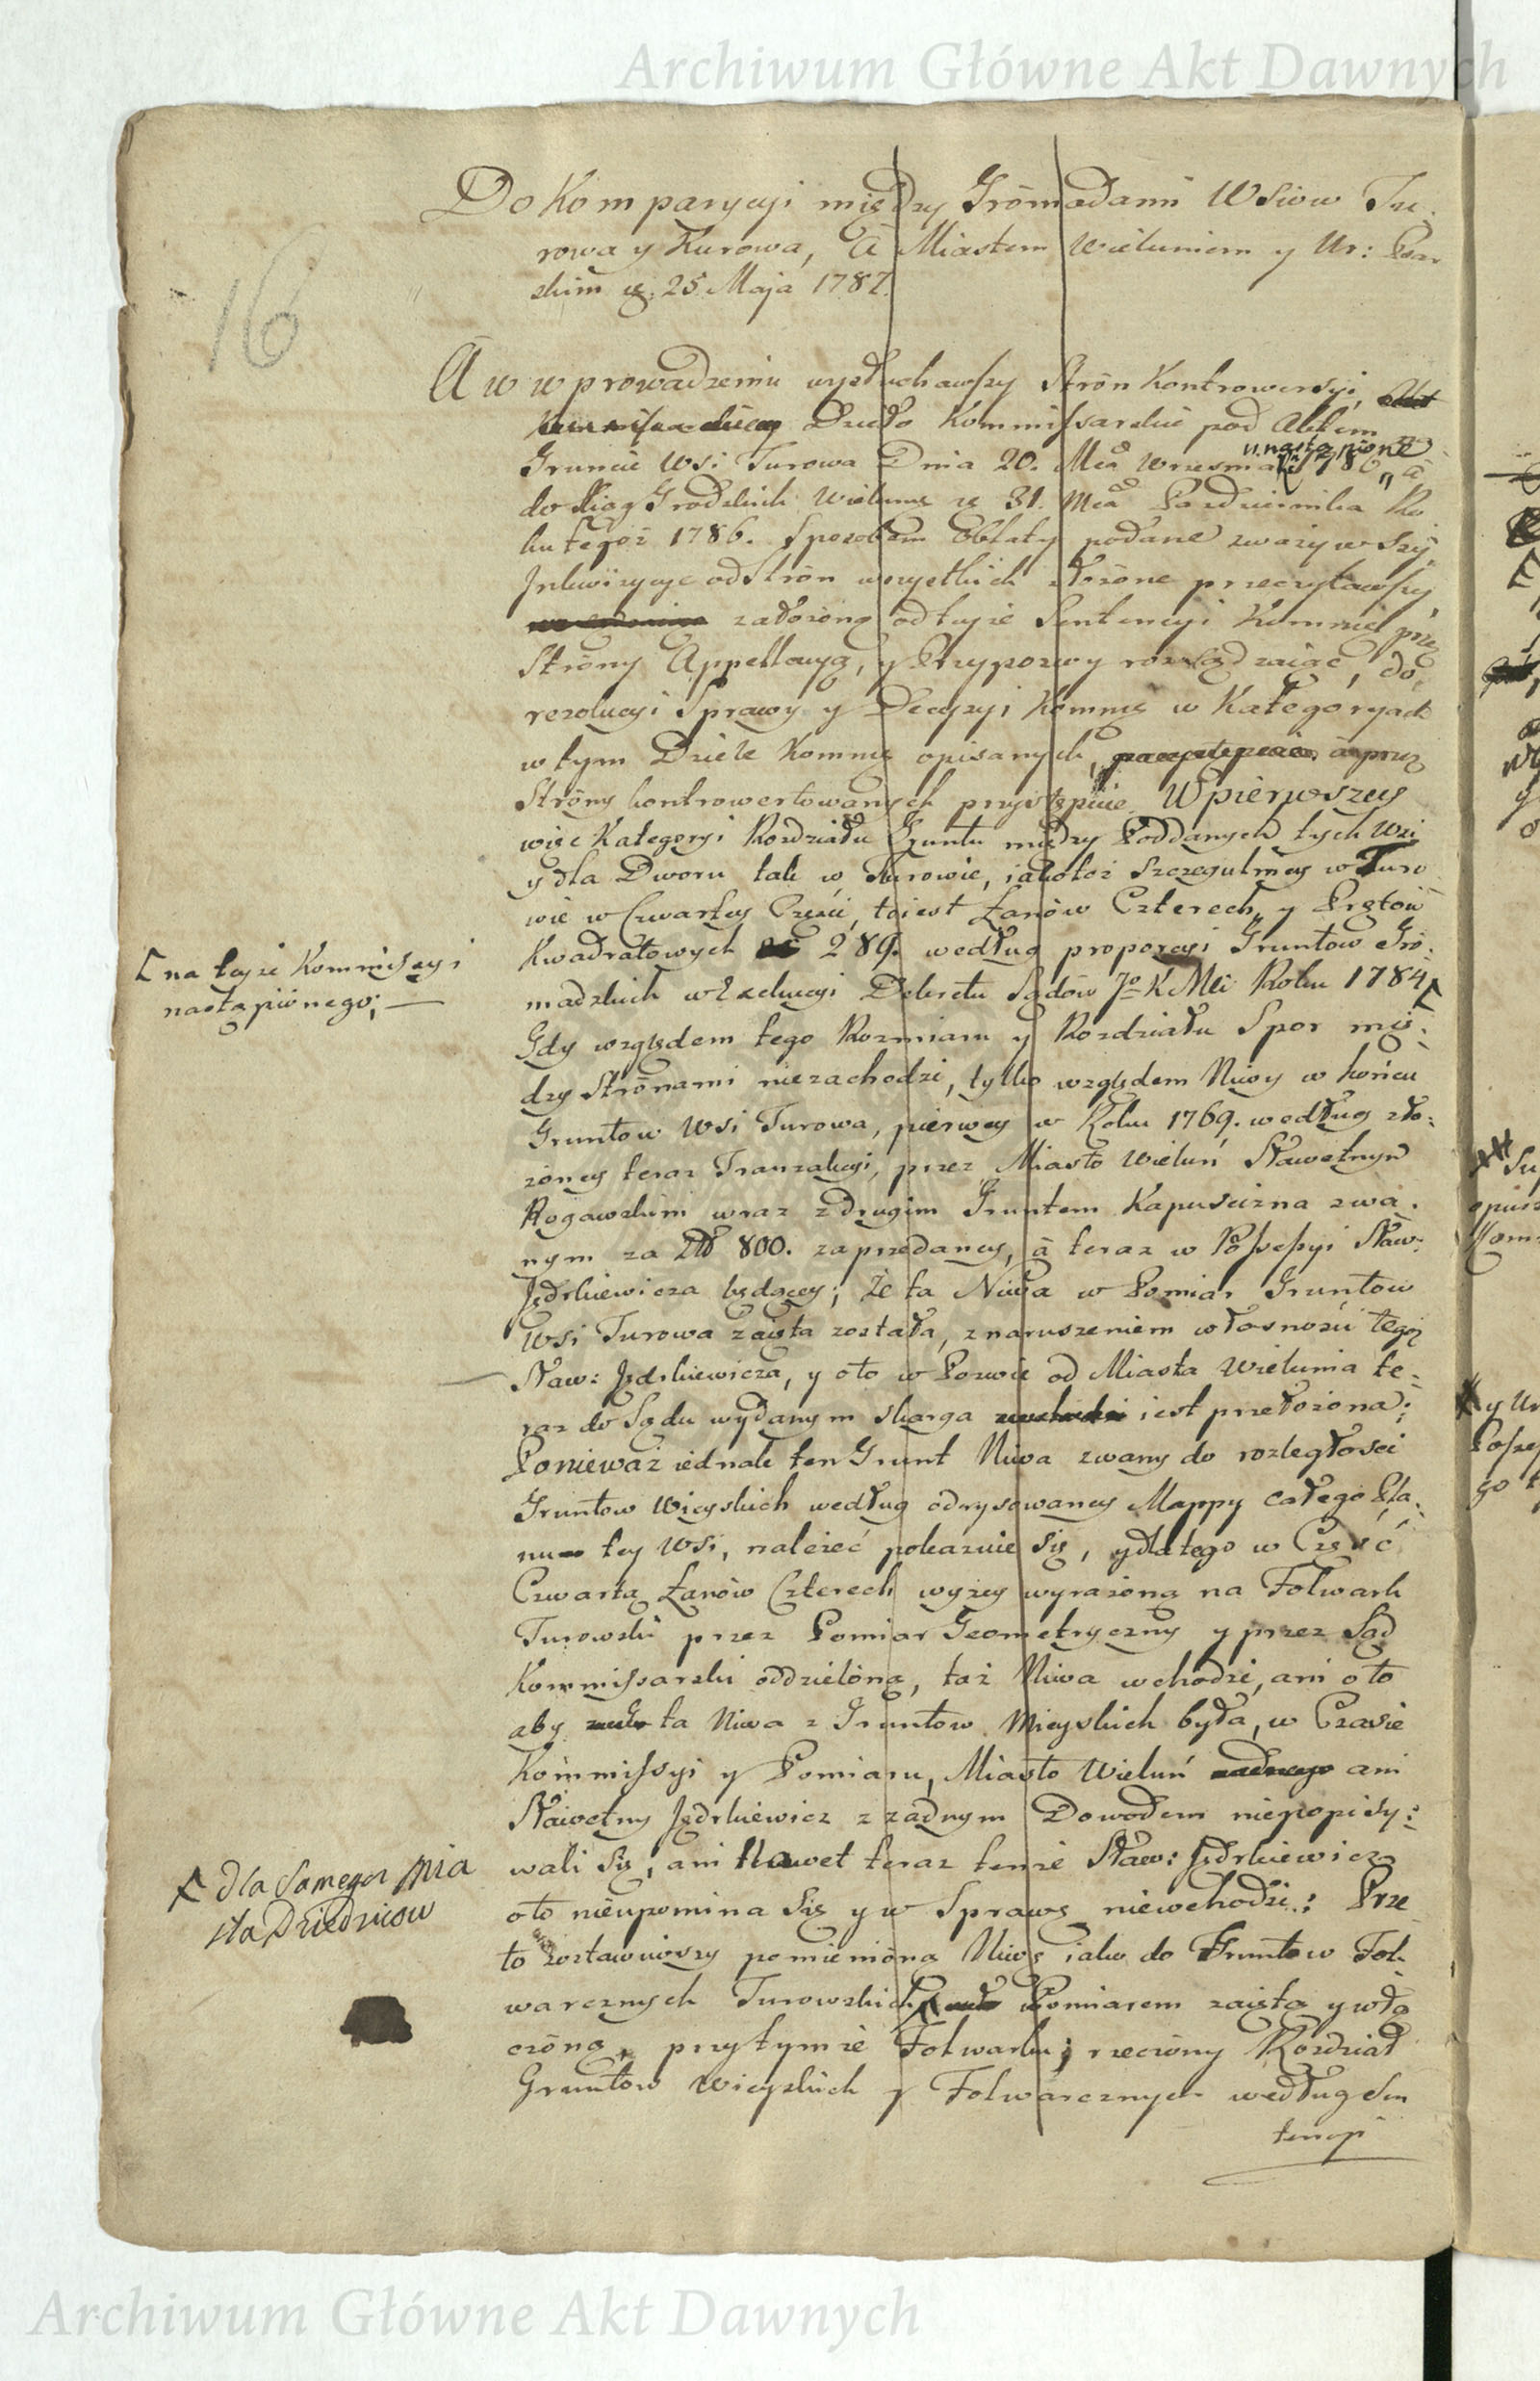 Archiwum Główne Akt Dawnych
16
Do Komparycyi między Grómadami Wsiow Tu-
rowa y Kurowa, á Miastem Wieluniem y Ur: Psar
skim 25 Maja 1787.
A w wprowadzeniu wysłuchawszy Strón Kontrowersyi,
Dzieło Kommissarskie pod Aktem
unastąpione
Gruncie Wsi Turowa Dnia 20. Mca Wrzesnia 1786, á
do Xiąg Grodzkich Wieluń: 31. Mca Pazdziernika Ro
ku tegoż 1786. Sposobem Oblaty podane zważywszy,
Inkwizycye od Strón wszystkich złożone przeczytawszy
założoną od tejże Sentencyi Kommis przez
Stróny Appellacyą, y Przypozwy rozsądzaiąc, do
rezolucyi Sprawy y Decyzyi Kommis w Kategoryach
w tym Dziele Kommis opisanych, á przez
Stróny kontrowertowanych przystępuie. W pierwszey
więc Kategoryi Rozdziału Gruntu między Poddanych tych Wsi
y dla Dworu tak w Turowie, iakoteż szczegulniey w Turo
wie w Czwartey Części, toiest Łanów Czterech, y Prętów
Kwadratowych 289. według proporcyi Gruntow Gro-
madzkich w Exekucyi Dekretu Sądów Jo K Mci Roku 1784
[ na teyże Kommissyi
nastąpiónego; —
Gdy względem tego Rozmiaru y Rozdziału Spor mię-
dzy Strónami niezachodzi, tylko względem Niwy w końcu
Gruntow Wsi Turowa, pierwey w Roku 1769. według zło-
żoney teraz Tranzakcyi, przez Miasto Wieluń Sławetnym
Rogawskim wraz z drugim Gruntem Kapuscizna zwa-
nym za Zł 800. zaprzedaney, á teraz w Possessyi Sław:
Jędrkiewicza będącey; Że ta Niwa w Pomiar Gruntow
Wsi Turowa zaięta została, z naruszeniem własności tegoż
Sław: Jędrkiewicza, y oto w Pozwie od Miasta Wielunia te-
raz do Sądu wydanym skarga iest przełożona;
Ponieważ iednak ten Grunt Niwa zwany do rozległości
Gruntow Wieyskich według odrysowaney Mappy całego Pla-
nu tey Wsi, należeć pokazuie się, y dla tego w Częsć
Czwartą Łanów Czterech wyżey wyrażoną na Folwark
Turowski przez Pomiar Geometryczny y przez Sąd
Kommissarski oddzieloną, taż Niwa wchodzi, ani oto
aby ta Niwa z Gruntow Mieyskich była, w Czasie
Kommissyi y Pomiaru, Miasto Wieluń ani
Sławetny Jędrkiewicz z żadnym Dowodem niepopisy-
wali się, ani nawet teraz tenże Sław: Jędrkiewicz
oto nieupomina się y w Sprawę niewchodzi; Prze
to zostawiwszy pomienioną Niwę iako do Gruntow Fol-
warcznych Turowskich Pomiarem zaiętą y włą
[ dla Samegoż Mia
sta Dziedzicow
czóną, przy tymże Folwarku; rzeczony Rozdział
Gruntow Wieyskich y Folwarcznych według Sen
tencyi
Archiwum Główne Akt Dawnych